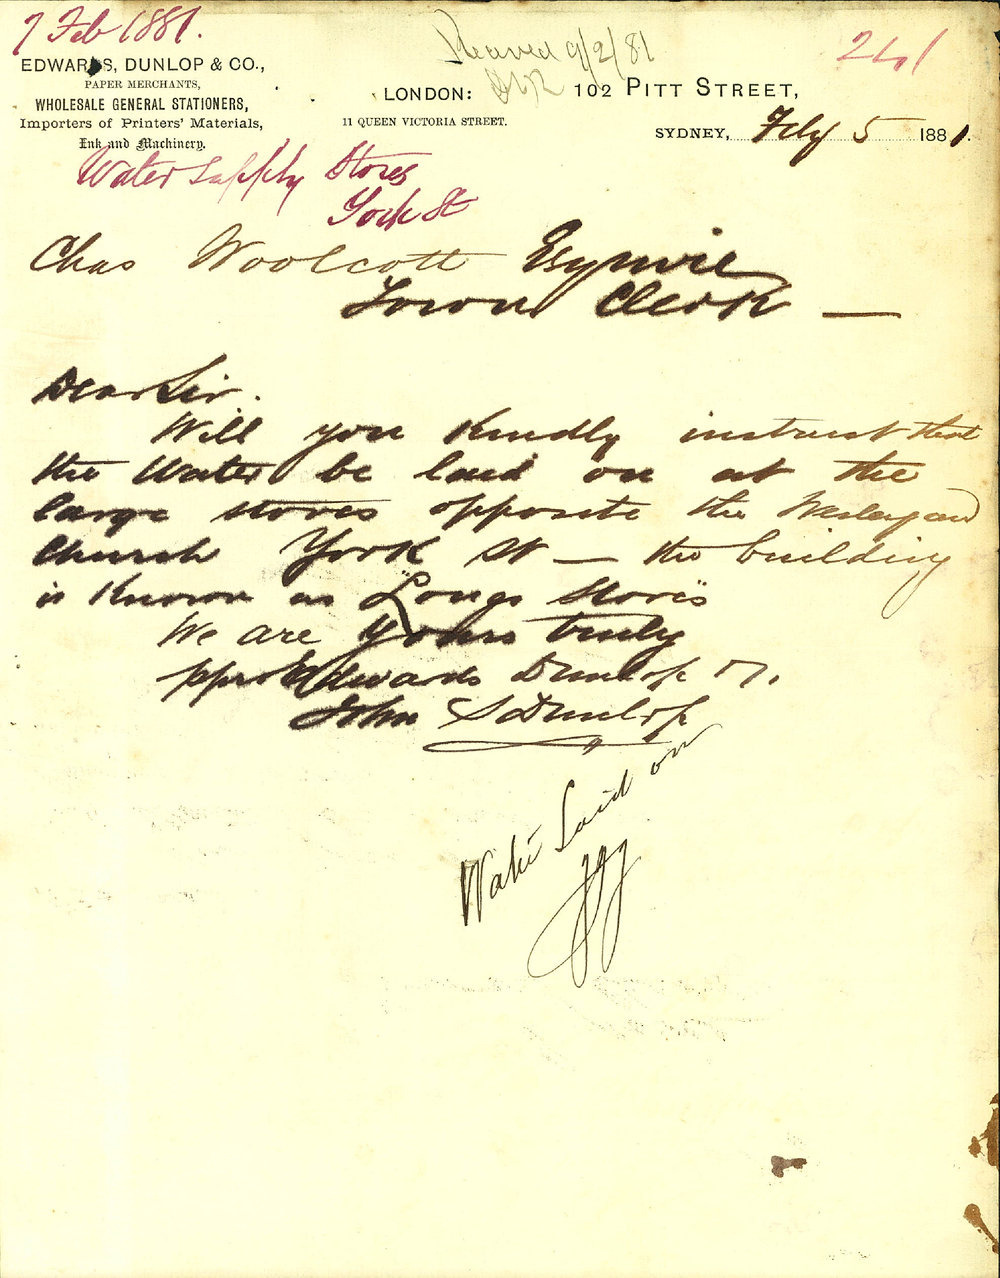 7 Feb 1881.
Received 9/2/81
241
EDWARDS, DUNLOP & CO.,
PAPER MERCHANTS,
WHOLESALE GENERAL STATIONERS,
Importers of Printers' Materials,
Ink and Machinery.
LONDON:
11 QUEEN VICTORIA STREET.
102 PITT STREET,
SYDNEY, Feby 5 1881.
Water Supply Stores
York St
Chas Woolcott Esquire
Town Clerk —
Dear Sir.
Will you kindly instruct that
the Water be laid on at the
large stores opposite the Wesleyan
Church York St — the building
is known as "Longs Stores"
We are yours truly
ppro Edwards Dunlop
John S Dunlop
Water Laid on